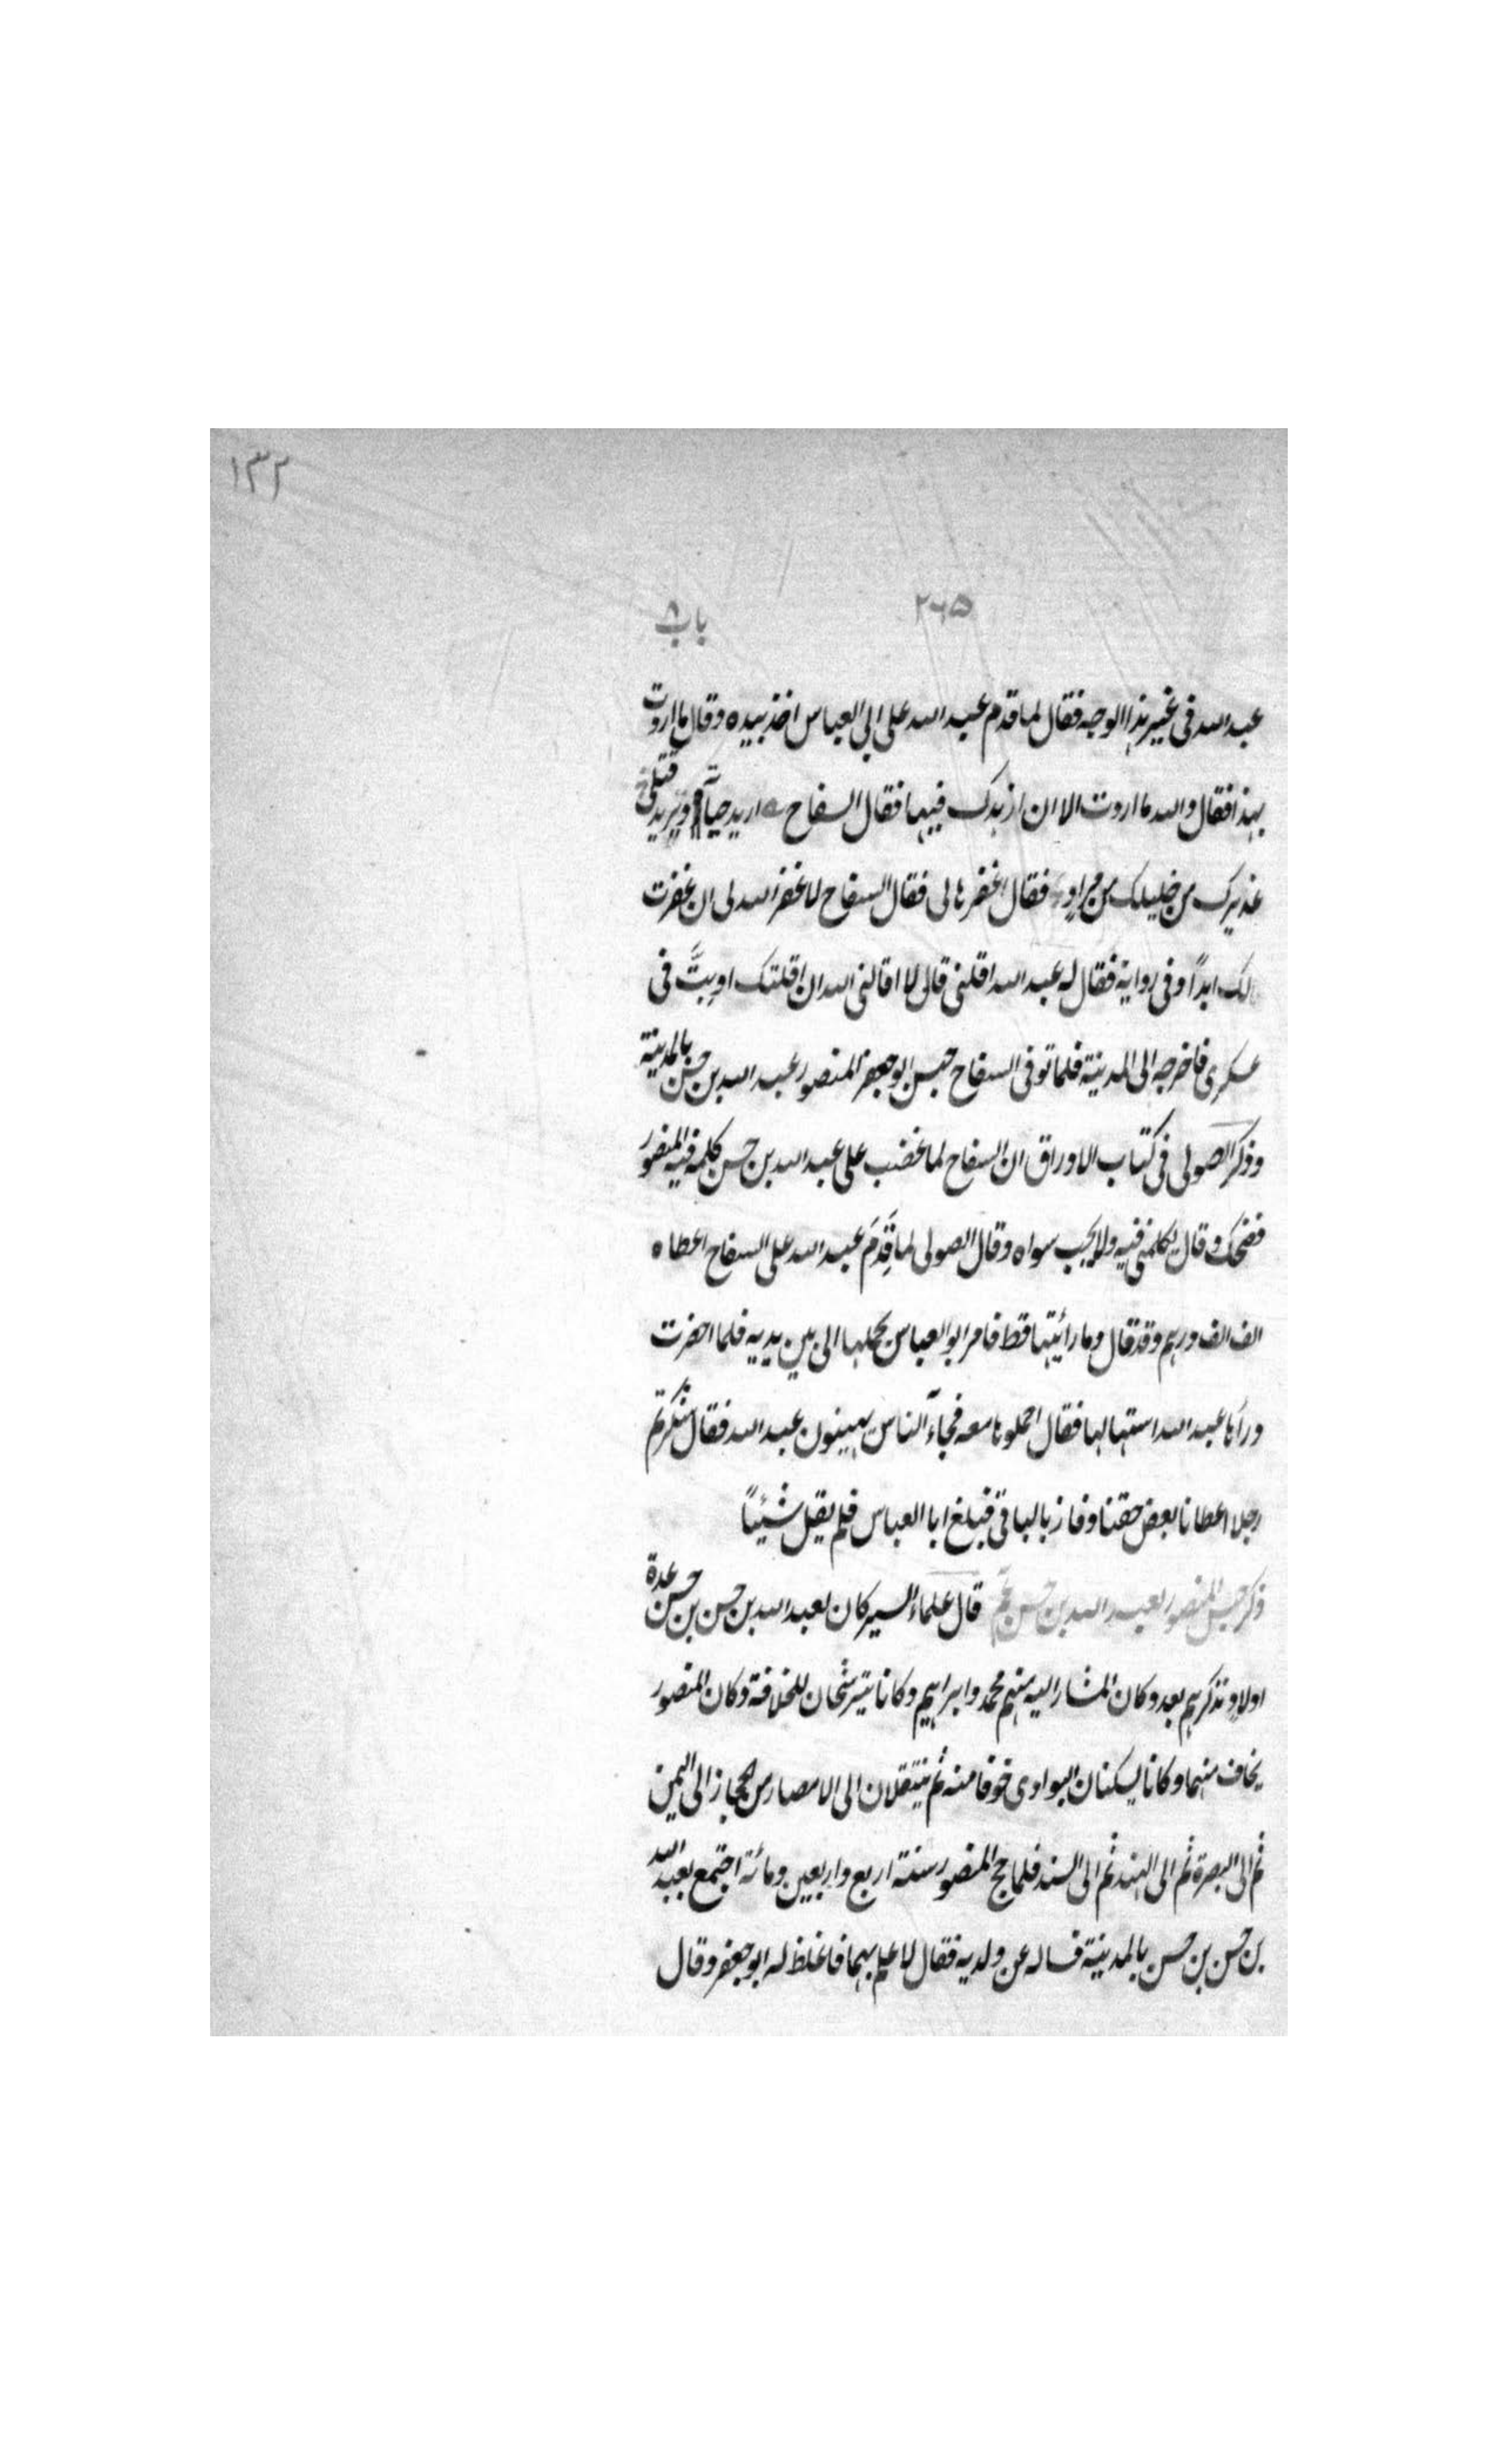 ١٣٢
٢٦٥
باب ٨
عبد الله فى غير هذا الوجه فقال لما قدم عبد الله على ابي العباس اخذ بيده وقال ما اردت
بهذا فقال والله ما اردت الا ان ازهدك فيها فقال السفاح اريد حياته ويريد قتلى
عذيرك من خليلك من مراد فقال اغفرها لى فقال السفاح لا غفر الله لى ان غفرت
لك ابدًا وفى رواية فقال له عبد الله اقلنى قال لا اقالنى الله ان اقلتك او بِتَّ فى
عسكرى فاخرجه الى المدينة فلما توفى السفاح حبس ابو جعفر المنصور عبد الله بن حسن بالمدينة
وذكر الصولى فى كتاب الاوراق ان السفاح لما غضب على عبد الله بن حسن كلمه فيه المنصور
فضحك وقال يكلمنى فيه ولا يجب سواه وقال الصولى لما قَدِمَ عبد الله على السفاح اعطاه
الف الف درهم وقد قال وما رأيتها قط فامر ابو العباس بحملها الى بين يديه فلما احضرت
ورآها عبد الله استهالها فقال احملوها معه فجاءَ الناس يهينون عبد الله فقال شكرتم
رجلا اعطانا بعض حقنا وفاز بالباقى فبلغ ابا العباس فلم يقل شيئًا
ذكر حبس المنصور لعبد الله بن حسن قال علماء السير كان لعبد الله بن حسن بن حسن عدة
اولاد نذكرهم بعد وكان المشار اليه منهم محمد وابراهيم وكانا يترشحان للخلافة وكان المنصور
يخاف منهما وكانا يسكنان البوادى خوفا منه ثم ينتقلان الى الامصار من الحجاز الى اليمن
ثم الى البصرة ثم الى الهند ثم الى السند فلما حج المنصور سنة اربع واربعين ومائة اجتمع بعبد الله
بن حسن بن حسن بالمدينة فساله عن ولديه فقال لا علم بهما فاغلظ له ابو جعفر وقال